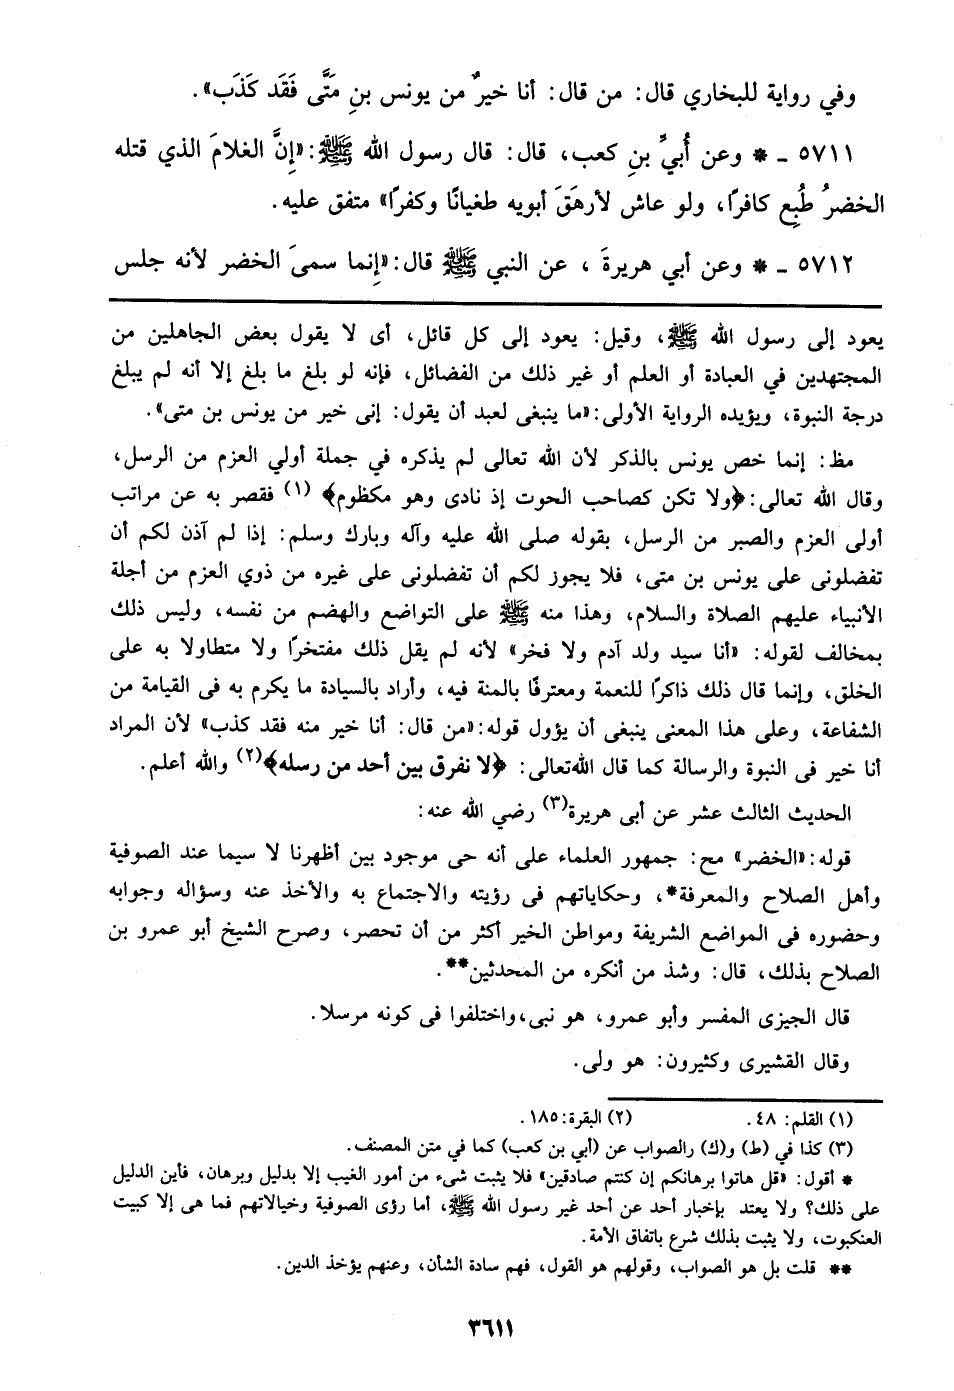 وفي رواية للبخاري قال: من قال: أنا خيرٌ من يونس بنِ مَتَّى فَقَد كَذَب».
٥٧١١ ـ * وعن أُبيِّ بنِ كعب، قال: قال رسول الله ﷺ: «إِنَّ الغلامَ الذي قتله
الخضرُ طُبِع كافرًا، ولو عاش لأرهَقَ أبويه طغيانًا وكفرًا» متفق عليه.
٥٧١٢ ـ * وعن أبي هريرةَ ، عن النبي ﷺ قال: «إِنما سمىَ الخضر لأنه جلس
يعود إلى رسول الله ﷺ، وقيل: يعود إلى كل قائل، أى لا يقول بعض الجاهلين من
المجتهدين في العبادة أو العلم أو غير ذلك من الفضائل، فإنه لو بلغ ما بلغ إلا أنه لم يبلغ
درجة النبوة، ويؤيده الرواية الأولى: «ما ينبغى لعبد أن يقول: إنى خير من يونس بن متى».
مظ: إنما خص يونس بالذكر لأن الله تعالى لم يذكره في جملة أولي العزم من الرسل،
وقال الله تعالى: ﴿ولا تكن كصاحب الحوت إذ نادى وهو مكظوم﴾ (١) فقصر به عن مراتب
أولى العزم والصبر من الرسل، بقوله صلى الله عليه وآله وبارك وسلم: إذا لم آذن لكم أن
تفضلونى على يونس بن متى، فلا يجوز لكم أن تفضلونى على غيره من ذوي العزم من أجلة
الأنبياء عليهم الصلاة والسلام، وهذا منه ﷺ على التواضع والهضم من نفسه، وليس ذلك
بمخالف لقوله: «أنا سيد ولد آدم ولا فخر» لأنه لم يقل ذلك مفتخرًا ولا متطاولا به على
الخلق، وإنما قال ذلك ذاكرًا للنعمة ومعترفًا بالمنة فيه، وأراد بالسيادة ما يكرم به فى القيامة من
الشفاعة، وعلى هذا المعنى ينبغى أن يؤول قوله: «من قال: أنا خير منه فقد كذب» لأن المراد
أنا خير فى النبوة والرسالة كما قال الله تعالى: ﴿لا نفرق بين أحد من رسله﴾(٢) والله أعلم.
الحديث الثالث عشر عن أبى هريرة(٣) رضي الله عنه:
قوله: «الخضر» مح: جمهور العلماء على أنه حى موجود بين أظهرنا لا سيما عند الصوفية
وأهل الصلاح والمعرفة*، وحكاياتهم فى رؤيته والاجتماع به والأخذ عنه وسؤاله وجوابه
وحضوره فى المواضع الشريفة ومواطن الخير أكثر من أن تحصر، وصرح الشيخ أبو عمرو بن
الصلاح بذلك، قال: وشذ من أنكره من المحدثين**.
قال الجيزى المفسر وأبو عمرو، هو نبى، واختلفوا فى كونه مرسلا.
وقال القشيرى وكثيرون: هو ولى.
(١) القلم: ٤٨. (٢) البقرة: ١٨٥.
(٣) كذا في (ط) و(ك) رالصواب عن (أبي بن كعب) كما في متن المصنف.
* أقول: «قل هاتوا برهانكم إن كنتم صادقين» فلا يثبت شىء من أمور الغيب إلا بدليل وبرهان، فأين الدليل
على ذلك؟ ولا يعتد بإخبار أحد عن أحد غير رسول الله ﷺ، أما رؤى الصوفية وخيالاتهم فما هى إلا كبيت
العنكبوت، ولا يثبت بذلك شرع باتفاق الأمة.
** قلت بل هو الصواب، وقولهم هو القول، فهم سادة الشأن، وعنهم يؤخذ الدين.
٣٦١١